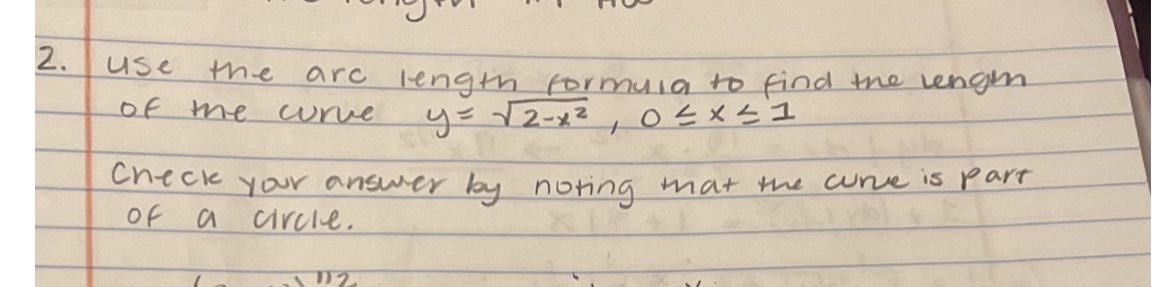 2. use the arc length formula to find the length
of the curve y = √2-x², 0 ≤ x ≤ 1
Check your answer by noting that the curve is part
of a circle.